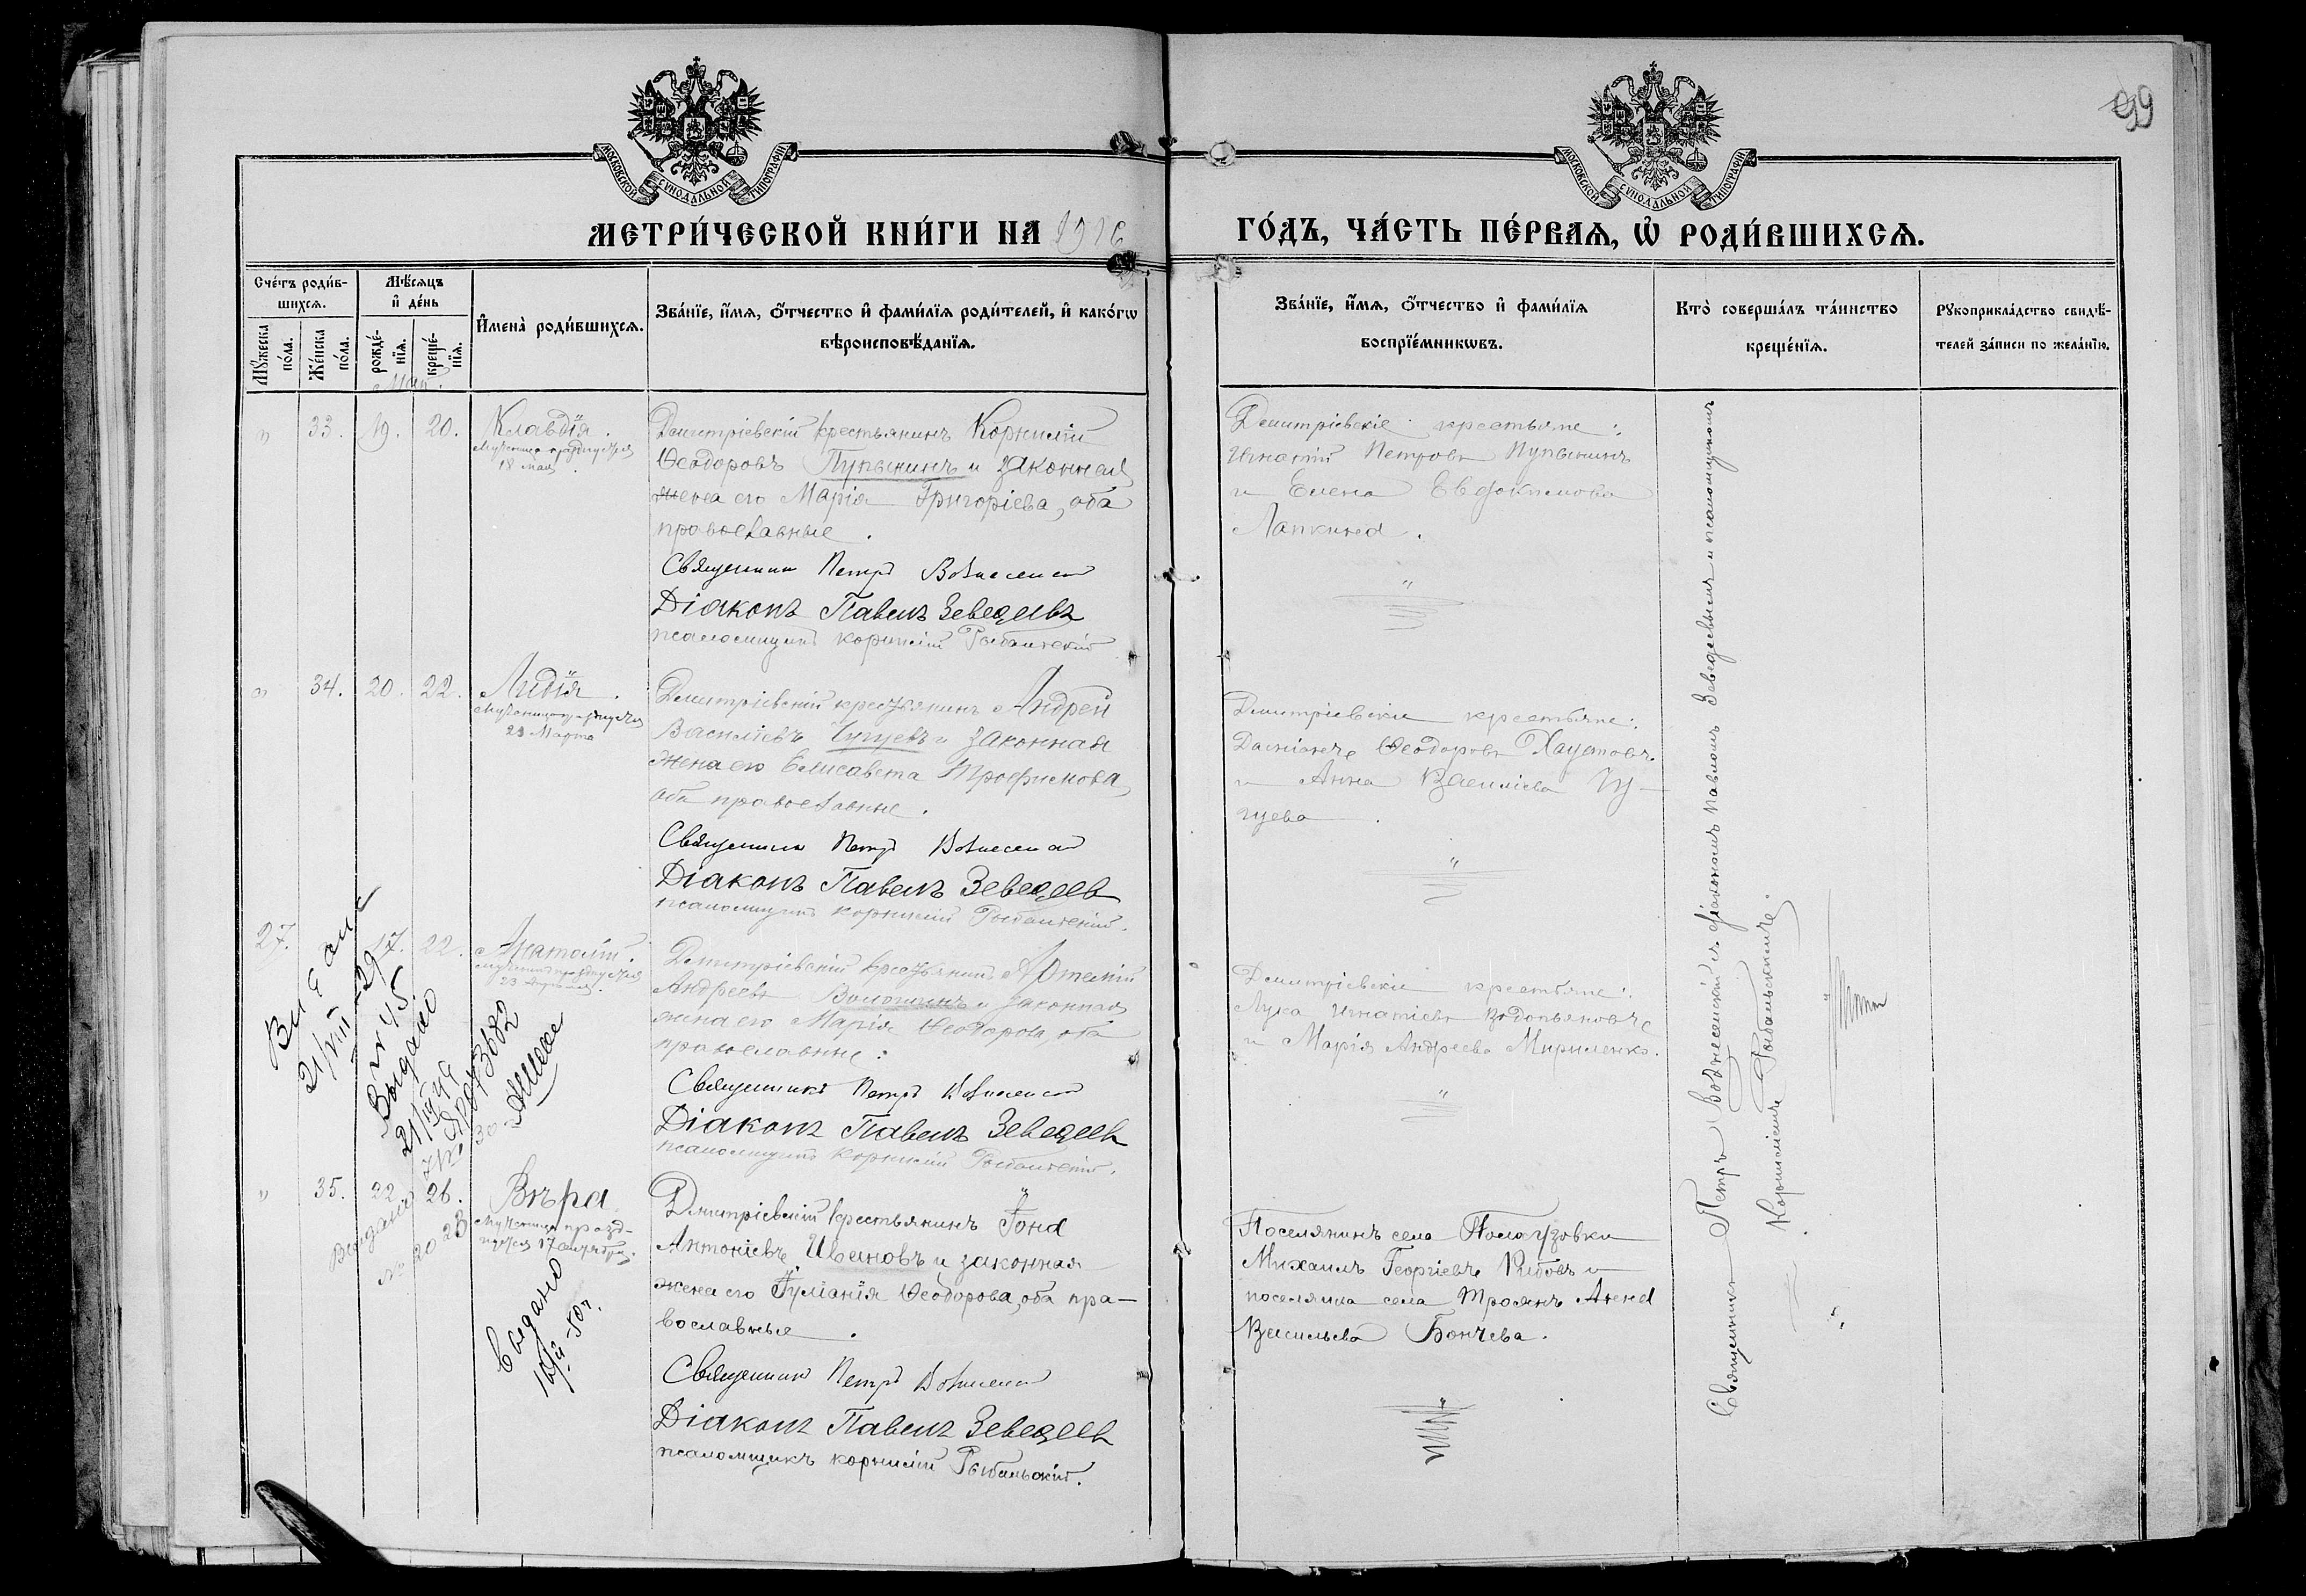 99
МОСКОВСКОЙ СУНОДАЛЬНОЙ ТИПОГРАФІИ
МОСКОВСКОЙ СУНОДАЛЬНОЙ ТИПОГРАФІИ
МЕТРИ́ЧЕСКОЙ КНИ́ГИ НА 1916
ГО́ДЪ, ЧА́СТЬ ПЕ́РВАЯ, Ѡ РОДИ́ВШИХСЯ.
Сче́тъ роди́в-
шихся.
Мѣ́сяцъ
и҆ де́нь
Мꙋ́жеска
по́ла.
Же́нска
по́ла.
рожде́-
нїя.
креще́-
нїя.
И҆мена̀ роди́вшихся.
Зва́нїе, и҆́мя, ѻ҆́тчество и҆ фами́лїя роди́телей, и҆ како́гѡ
вѣроисповѣ́данїя.
Зва́нїе, и҆́мя, ѻ҆́тчество и҆ фами́лїя
воспрїе́мникѡвъ.
Кто̀ соверша́лъ та́инство
креще́нїя.
Рꙋкоприкла́дство свидѣ́-
телей за́писи по жела́нїю.
Май.
" 33. 19. 20. Клавдія.
Мученица празднуется
18 мая
Димитріевскій крестьянинъ Корнилій
Ѳеодоровъ Пупынинъ и законная
жена его Марія Григорієва, оба
православные.
Священникъ Петръ Вознесенскій
Діаконъ Павелъ Зеведеевъ
псаломщикъ Корнилій Рыбальскій
Димитріевскіе крестьяне:
Игнатій Петровъ Пупынинъ
и Елена Евдокимова
Лапкина.
" 34. 20. 22. Лидія.
Мученица празднуется
23 Марта
Димитріевскій крестьянинъ Андрей
Василіевъ Чугуевъ и законная
жена его Елисавета Трофимова,
оба православные.
Священникъ Петръ Вознесенскій
Діаконъ Павелъ Зеведеевъ
псаломщикъ Корнилій Рыбальскій.
Димитріевскіе крестьяне:
Ѳеодоровъ Хаустовъ
и Анна Василіева Чу-
гуева.
27. 17. 22. Анатолій.
Мученикъ празднуется
23 Апрѣля.
Димитріевскій крестьянинъ Артемій
Андреевъ Волошинъ и законная
жена его Марія Ѳеодорова, оба
православные.
Священникъ Петръ Вознесенскій
Діаконъ Павелъ Зеведеевъ
псаломщикъ Корнилій Рыбальскій.
Димитріевскіе крестьяне:
Лука Игнатіевъ Водопьяновъ
и Марія Андреева Мириленко.
21/VIII-29
№ 45
Выдано
21/IV 49
" 35. 22. 26. Вѣра.
Мученица празд-
нуется 17 сентября.
Димитріевскій крестьянинъ Іона
Антоніевъ Ивановъ и законная
жена его Іуліанія Ѳеодорова, оба пра-
вославные.
Священникъ Петръ Вознесенскій
Діаконъ Павелъ Зеведеевъ
псаломщикъ Корнилій Рыбальскій.
Поселянинъ села
Михаилъ Георгіевъ и
поселянка села Троянъ
Васильева Бончева.
Выдано
№ 2023
Выдано
Священникъ Петръ Вознесенскій съ діакономъ Павломъ Зеведеевымъ и псаломщикомъ
Корниліемъ Рыбальскимъ.